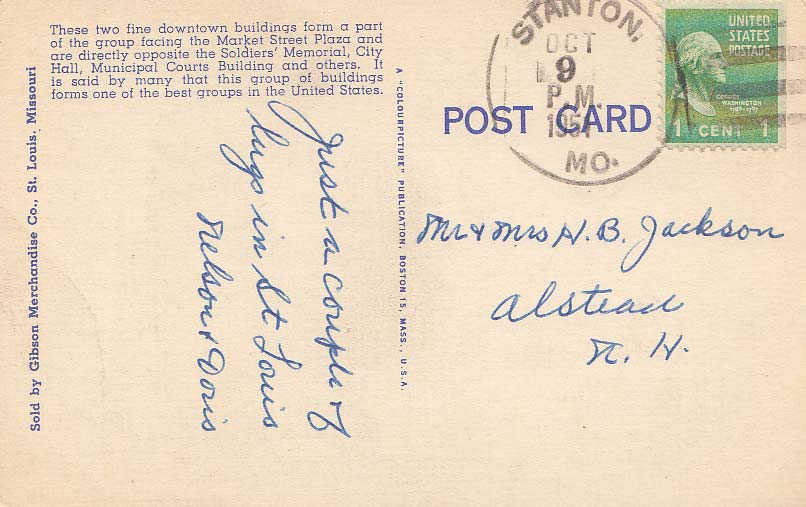 These two fine downtown buildings form a part
of the group facing the Market Street Plaza and
are directly opposite the Soldiers' Memorial, City
Hall, Municipal Courts Building and others. It
is said by many that this group of buildings
forms one of the best groups in the United States.
Sold by Gibson Merchandise Co., St. Louis, Missouri
Just a couple of
lugs in St Louis
Nelson & Doris
A "COLOURPICTURE" PUBLICATION, BOSTON 15, MASS., U.S.A.
POST CARD
STANTON,
OCT
9
P.M.
1951
MO.
UNITED
STATES
POSTAGE
GEORGE
WASHINGTON
1789-1797
1 CENT 1
Mr & Mrs H. B. Jackson
Alstead
N. H.